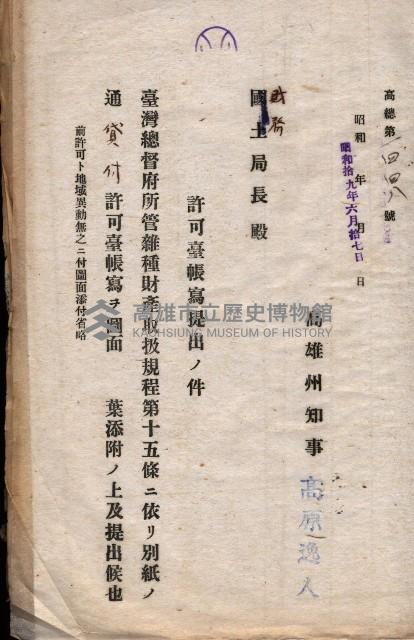 高總第一四四八號
昭和 年 月 日
昭和拾九年六月拾七日
高雄州知事 高原逸人
財務
國土局長殿
許可臺帳寫提出ノ件
臺灣總督府所管雜種財產取扱規程第十五條ニ依リ別紙ノ
通貸付許可臺帳寫ヲ圖面 葉添附ノ上及提出候也
前許可ト地域異動無之ニ付圖面添付省略
高雄市立歷史博物館
KAOHSIUNG MUSEUM OF HISTORY